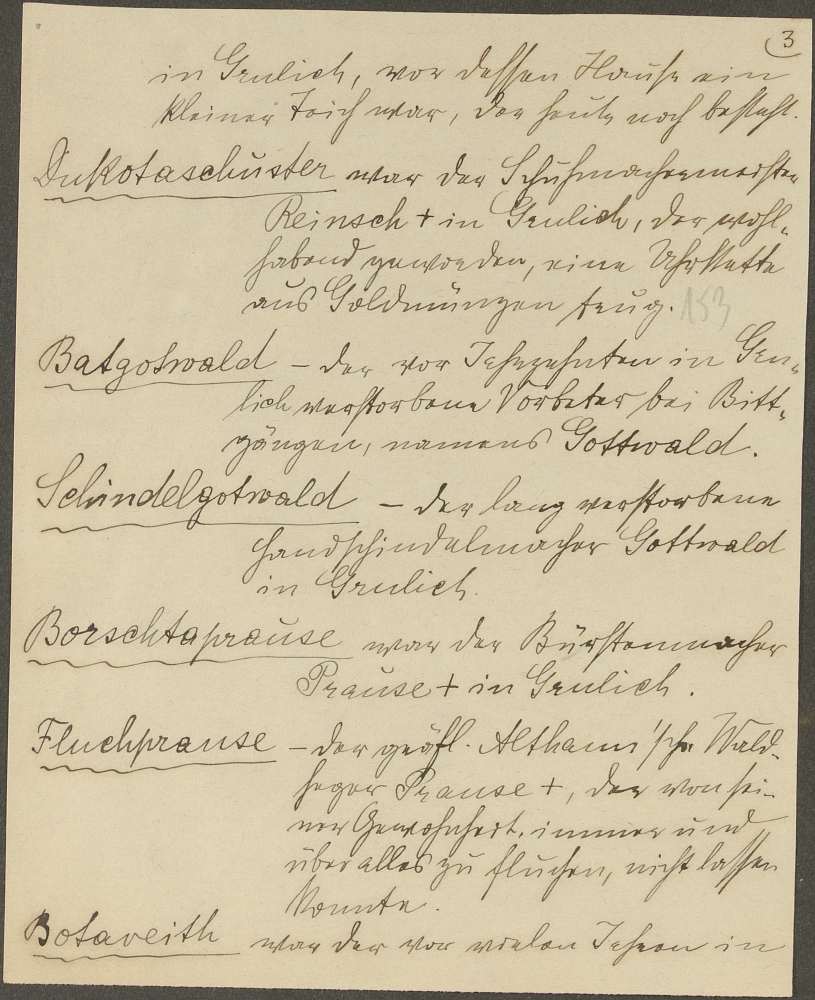 3
in Grulich, vor dessen Hause ein
kleiner Teich war, der heute noch besteht.
Dukotaschuster war der Schuhmachermeister
Reinsch + in Grulich, der wohl-
habend geworden, eine Uhrkette
aus Goldmünzen trug. 153
Batgotwald - der vor Jahrzehnten in Gru-
lich verstorbene Vorbeter bei Bitt-
gängen, namens Gottwald.
Schindelgotwald - der lang verstorbene
Handschindelmacher Gottwald
in Grulich.
Borschtaprause war der Bürstenmacher
Prause + in Grulich.
Fluchprause - der gräfl. Althann'sche Wald-
heger Prause +, der von sei-
ner Gewohnheit, immer und
über alles zu fluchen, nicht lassen
konnte.
Botaveith war der vor vielen Jahren in